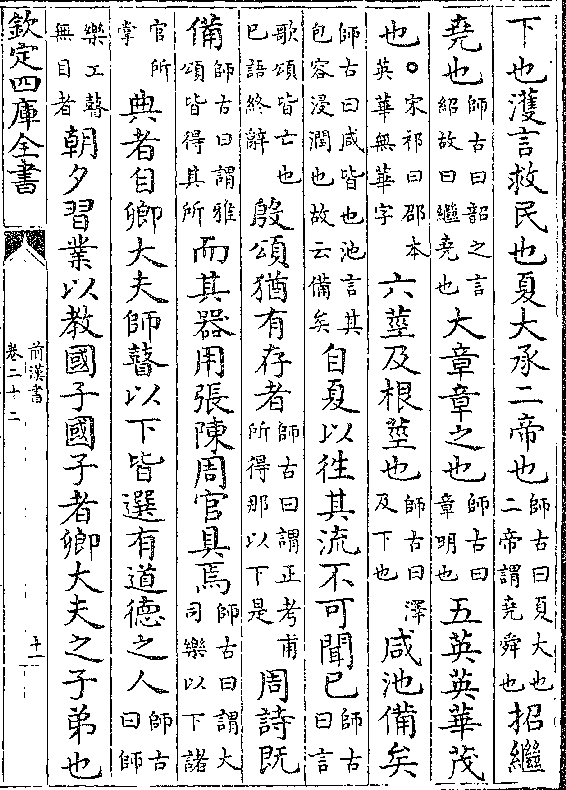 下也濩言救民也夏大承二帝也師古曰夏大也二帝謂堯舜也招繼
堯也師古曰韶之言紹故曰繼堯也大章章之也師古曰章明也五英英華茂
也○宋祁曰邵本英華無華字六莖及根莖也師古曰澤及下也咸池備矣
師古曰咸皆也池言其包容浸潤也故云備矣自夏以徃其流不可聞已師古曰言
歌頌皆亡也已語終辭殷頌猶有存者師古曰謂正考甫所得那以下是周詩既
備師古曰謂雅頌皆得其所而其器用張陳周官具焉師古曰謂大司樂以下諸
官所掌典者自卿大夫師瞽以下皆選有道德之人師古曰師
樂工瞽無目者朝夕習業以教國子國子者卿大夫之子弟也
欽定四庫全書
前漢書
卷二十二
十一